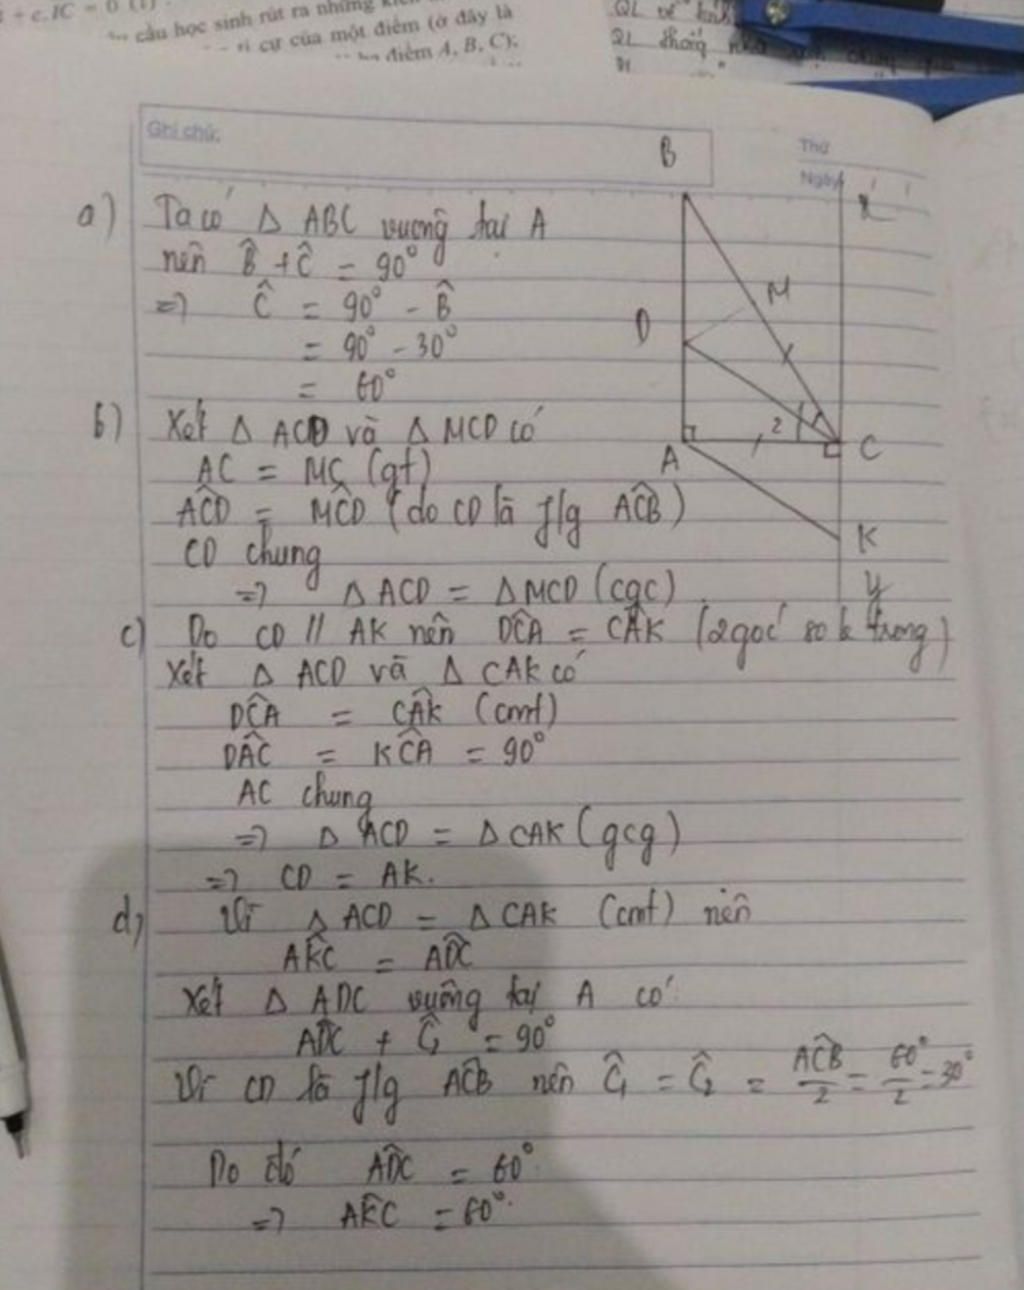 + c.IC = 0 (1)
cầu học sinh rút ra những
cự của một điểm (ở đây là
điểm A, B, C);
QL
QL
Ghi chú:
Thứ
Ngày
B
x
M
D
2
A
C
K
y
a) Ta có Δ ABC vuông tại A
nên B̂ + Ĉ = 90°
=> Ĉ = 90° - B̂
= 90° - 30°
= 60°
b) Xét Δ ACD và Δ MCD có
AC = MC (gt)
AĈD = MĈD (do CD là f/g AĈB)
CD chung
=> Δ ACD = Δ MCD (cgc)
c) Do CD // AK nên DĈA = CÂK (2 góc so le trong)
Xét Δ ACD và Δ CAK có
DĈA = CÂK (cmt)
DÂC = KĈA = 90°
AC chung
=> Δ ACD = Δ CAK (gcg)
=> CD = AK.
d) Vì Δ ACD = Δ CAK (cmt) nên
AK̂C = AD̂C
Xét Δ ADC vuông tại A có
AD̂C + Ĉ₂ = 90°
Vì CD là f/g AĈB nên Ĉ₁ = Ĉ₂ = AĈB/2 = 60°/2 = 30°
Do đó AD̂C = 60°
=> AK̂C = 60°.